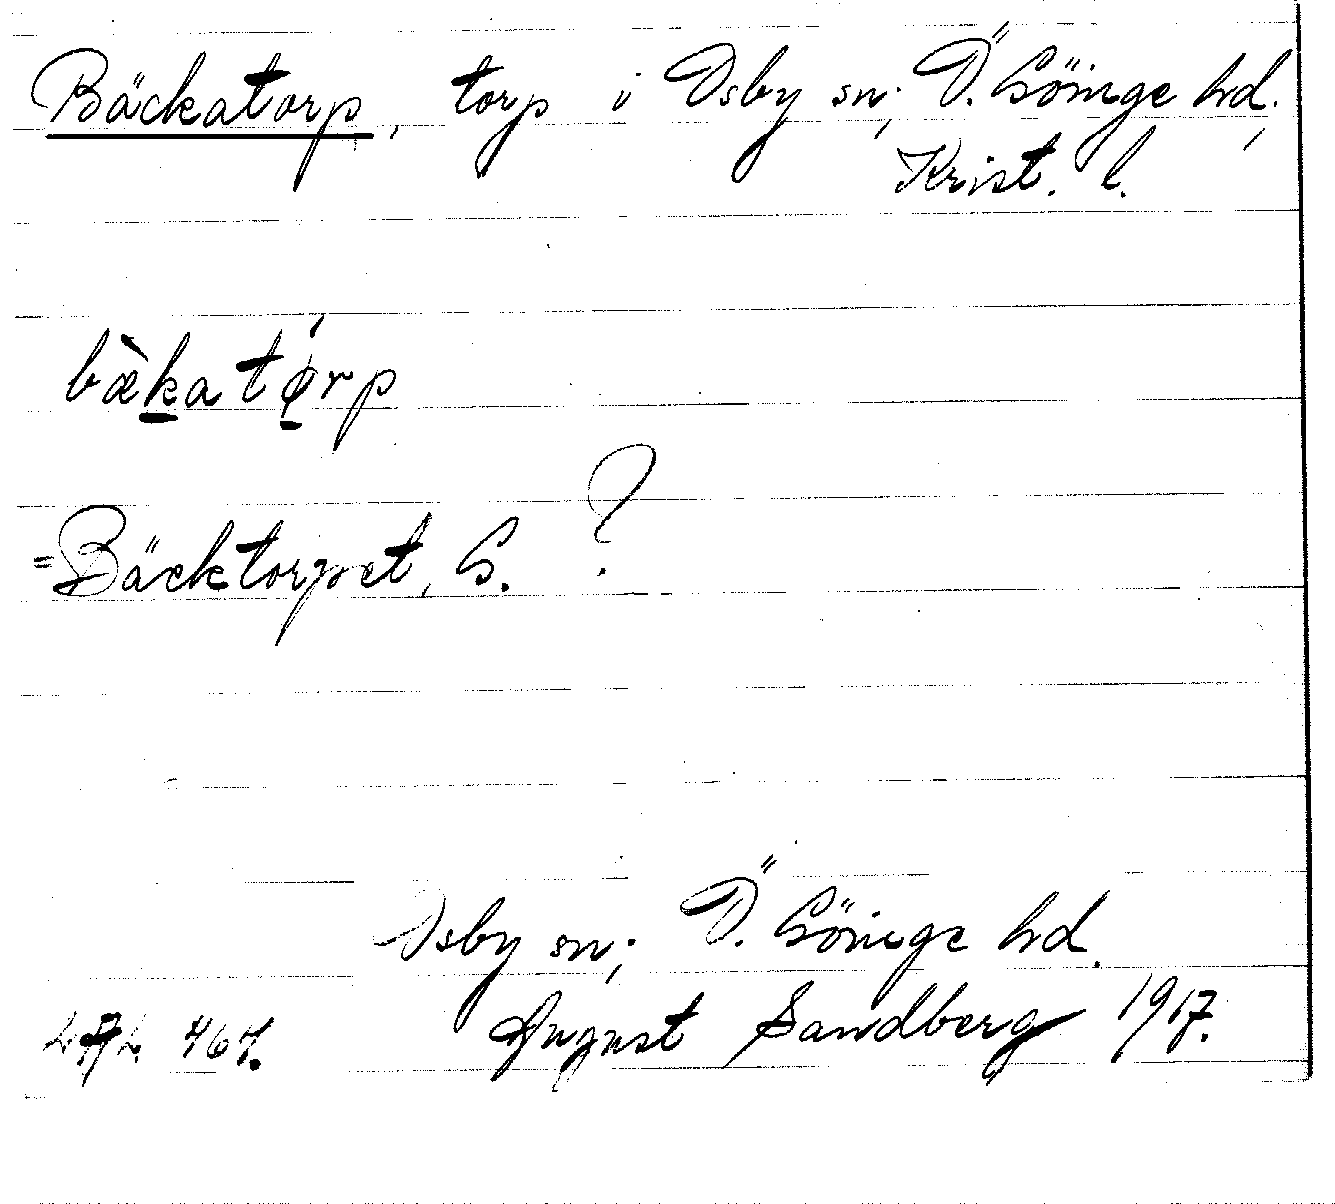 Bäckatorp, torp i Osby sn; Ö. Göinge hd,
Krist. l.
bæ̀katǿrp
=Bäcktorpet, G. ?
Osby sn; Ö. Göinge hd.
August Sandberg 1917.